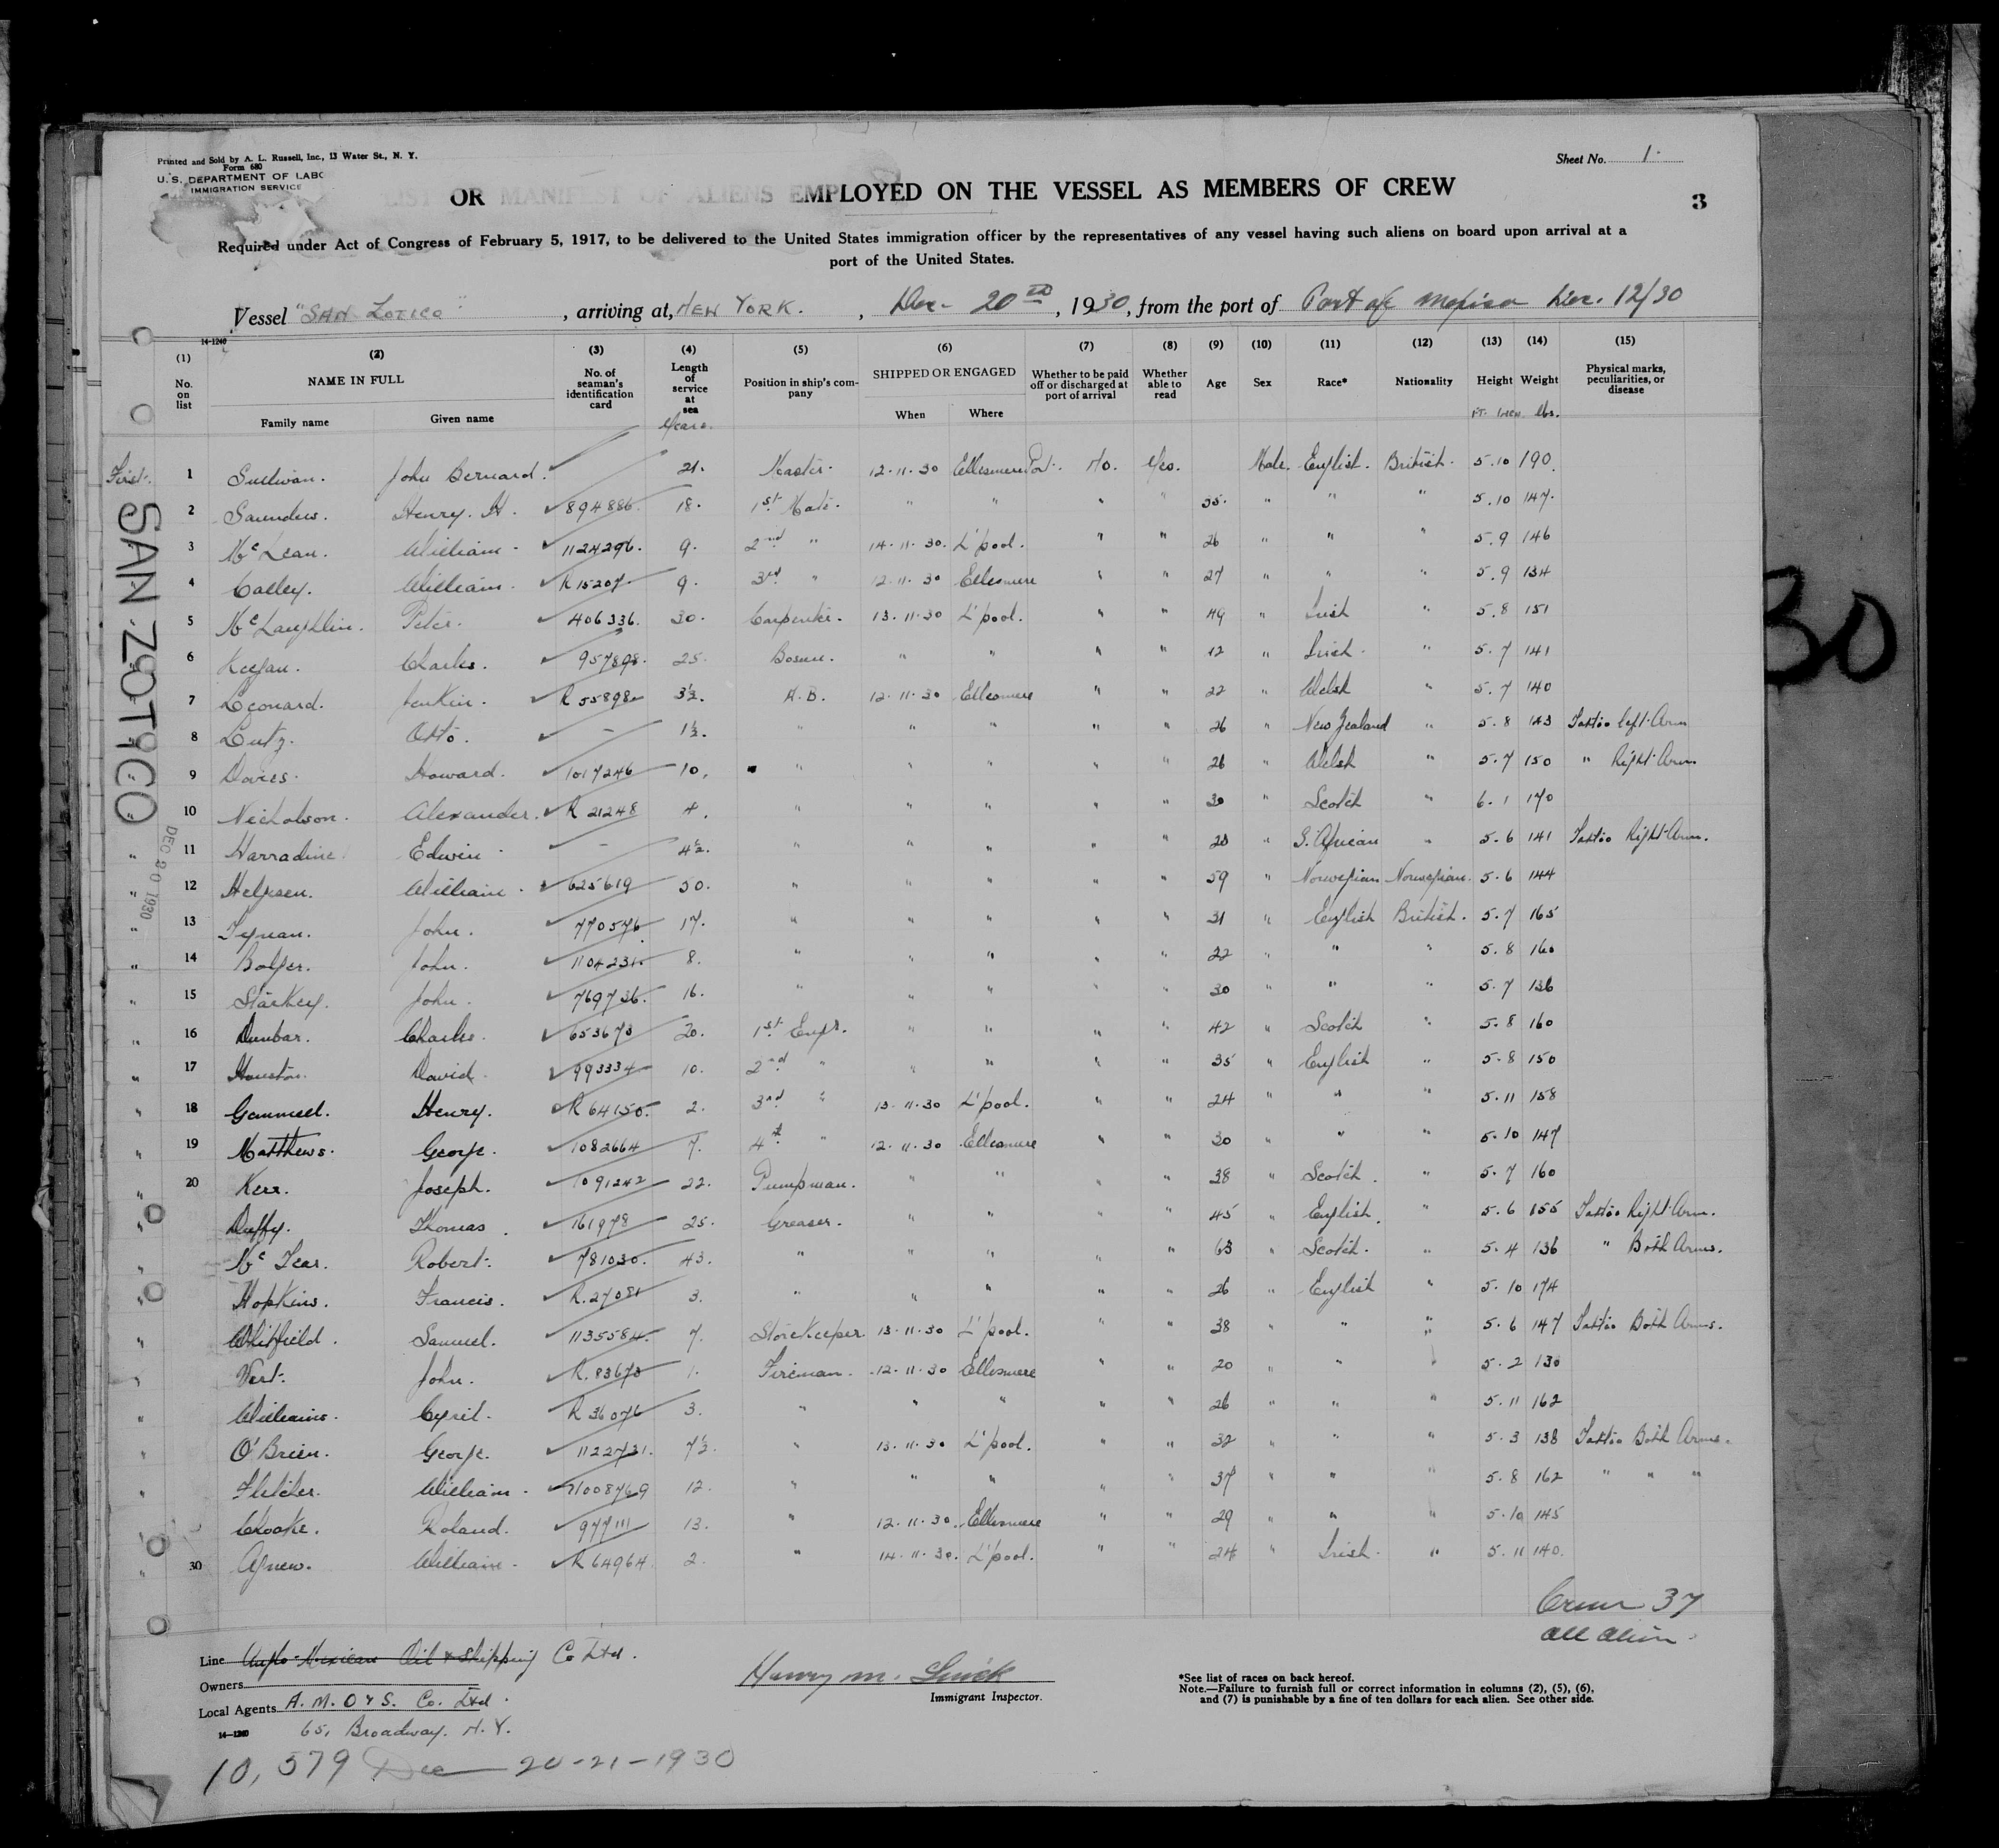 Printed and Sold by A. L. Russell, Inc., 13 Water St., N. Y.
Form 680
U. S. DEPARTMENT OF LABO
IMMIGRATION SERVICE
Sheet No. 1.
LIST OR MANIFEST OF ALIENS EMPLOYED ON THE VESSEL AS MEMBERS OF CREW
3
Required under Act of Congress of February 5, 1917, to be delivered to the United States immigration officer by the representatives of any vessel having such aliens on board upon arrival at a
port of the United States.
Vessel "SAN ZOTICO", arriving at, NEW YORK. , Dec- 20TH, 1930, from the port of Port of Mexico Dec. 12/30
14-1240
(1) (2) (3) (4) (5) (6) (7) (8) (9) (10) (11) (12) (13) (14) (15)
No. on list NAME IN FULL Family name Given name No. of seaman's identification card Length of service at sea Years. Position in ship's company SHIPPED OR ENGAGED When Where Whether to be paid off or discharged at port of arrival Whether able to read Age Sex Race* Nationality Height Weight Physical marks, peculiarities, or disease
Ft. Inch lbs.
First. 1 Sullivan. John Bernard. 21. Master. 12.11.30 Ellesmere Port. No. Yes. Male. English. British. 5.10 190
2 Saunders. Henry. H. 894886. 18. 1st Mate. " " " " 35. " " " 5.10 147.
3 McLean. William. 1124296. 9. 2nd " 14.11.30. L'pool. " " 26 " " " 5.9 146
4 Calley. William. R 15207. 9. 3rd " 12.11.30 Ellesmere " " 27 " " " 5.9 134
5 McLaughlin. Peter. 406336. 30. Carpenter. 13.11.30 L'pool. " " 49 " Irish " 5.8 151
6 Keegan. Charles. 957898. 25. Bosun. " " " " 42 " Irish. " 5.7 141
7 Leonard. Jenkin. R 55898 3½. A.B. 12.11.30 Ellesmere " " 22 " Welsh " 5.7 140
8 Lutz. Otto. - 1½. " " " " " 26 " New Zealand " 5.8 143 Tattoo left Arm
9 Davies. Howard. 1017246 10. " " " " " 26 " Welsh " 5.7 150 " Right Arm
10 Nicholson. Alexander. R 21248 4. " " " " " 30 " Scotch " 6.1 170
" 11 Harradine. Edwin. - 4½. " " " " " 23 " S. African " 5.6 141 Tattoo Right Arm.
" 12 Helgesen. William. 625619 50. " " " " " 59 " Norwegian Norwegian. 5.6 144
" 13 Tynan. John. 770576 17. " " " " " 31 " English British. 5.7 165
" 14 Bolger. John. 1104231. 8. " " " " " 22 " " " 5.8 160
" 15 Starkey. John. 769736. 16. " " " " " 30 " " " 5.7 136
" 16 Dunbar. Charles. 653673 20. 1st Engr. " " " " 42 " Scotch " 5.8 160
" 17 Houston. David. 993334 10. 2nd " " " " " 35 " English " 5.8 150
" 18 Gammell. Henry. R 64150. 2. 3rd " 13.11.30 L'pool. " " 24 " " " 5.11 158
" 19 Matthews. George. 1082664 7. 4th " 12.11.30 Ellesmere " " 30 " " " 5.10 147
" 20 Kerr. Joseph. 1091242 22. Pumpman. " " " " 38 " Scotch. " 5.7 160
" Duffy. Thomas. 161978 25. Greaser. " " " " 45 " English. " 5.6 155 Tattoo Right Arm.
" McTear. Robert. 781030. 43. " " " " " 63 " Scotch. " 5.4 136 " Both Arms.
" Hopkins. Francis. R.27081 3. " " " " " 26 " English " 5.10 174
" Whitfield. Samuel. 1135584. 7. Storekeeper 13.11.30 L'pool. " " 38 " " " 5.6 147 Tattoo Both Arms.
" Vert. John. R.83673 1. Fireman. 12.11.30 Ellesmere " " 20 " " " 5.2 130
" Williams. Cyril. R 36076 3. " " " " " 26 " " " 5.11 162
" O'Brien. George. 1122731. 7½. " 13.11.30 L'pool. " " 32 " " " 5.3 138 Tattoo Both Arms.
" Fletcher. William. 1008769 12. " " " " " 37 " " " 5.8 162 " " "
" Croake. Roland. 977111 13. " 12.11.30. Ellesmere " " 29 " " " 5.10 145
" 30 Agnew. William. R 64964 2. " 14.11.30. L'pool. " " 24 " Irish. " 5.11 140.
SAN ZOTICO
DEC 20 1930
30
Crew 37
all alien.
Line Anglo-Mexican Oil & Shipping Co Ltd.
Owners
Local Agents A. M. O & S. Co. Ltd.
14-1240 65, Broadway. N.Y.
Henry M.
Immigrant Inspector.
*See list of races on back hereof.
Note.—Failure to furnish full or correct information in columns (2), (5), (6),
and (7) is punishable by a fine of ten dollars for each alien. See other side.
10,579 Dec 20-21-1930